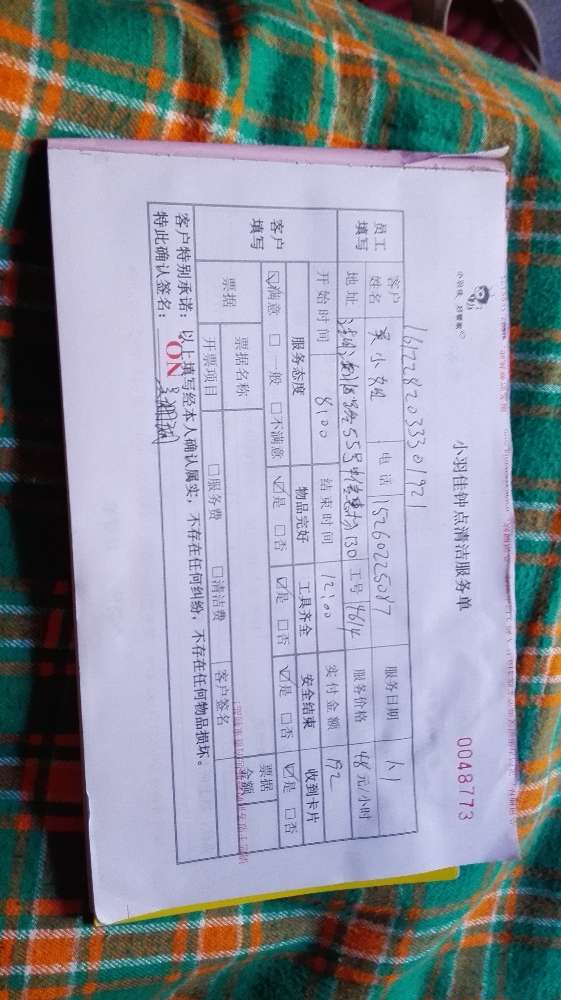 小羽佳钟点清洁服务单
小羽佳 好管家
No 0048773
1612282033301921
员工填写 客户姓名 吴小姐 电话 15260225087 服务日期 1.1
地址 55号 130 工号 4614 服务价格 48元/小时
开始时间 8:00 结束时间 12:00 实付金额 192
客户填写 服务态度 物品完好 工具齐全 安全结束 收到卡片
☑满意 □一般 □不满意 ☑是 □否 ☑是 □否 ☑是 □否 ☑是 □否
票据 票据名称 票据金额
开票项目 □服务费 □清洁费 客户签名
客户特别承诺：以上填写经本人确认属实，不存在任何纠纷，不存在任何物品损坏。
特此确认签名：